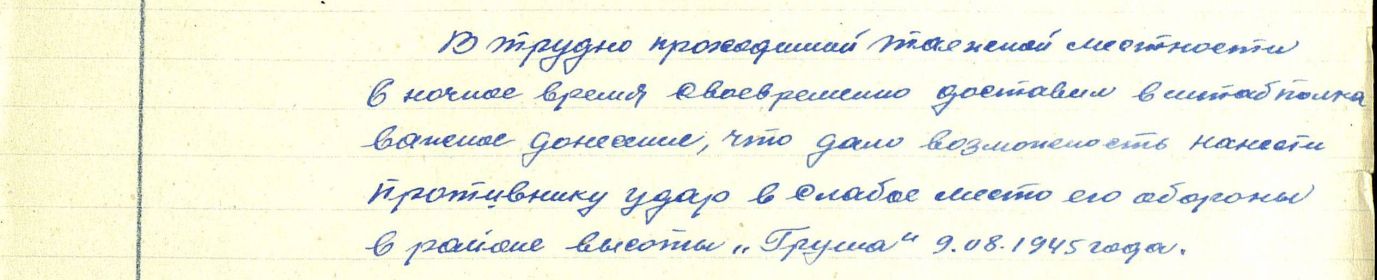 В трудно проходимой таежной местности
в ночное время своевременно доставил в штаб полка
важное донесение, что дало возможность нанести
противнику удар в слабое место его обороны
в районе высоты „Груша" 9.08.1945 года.